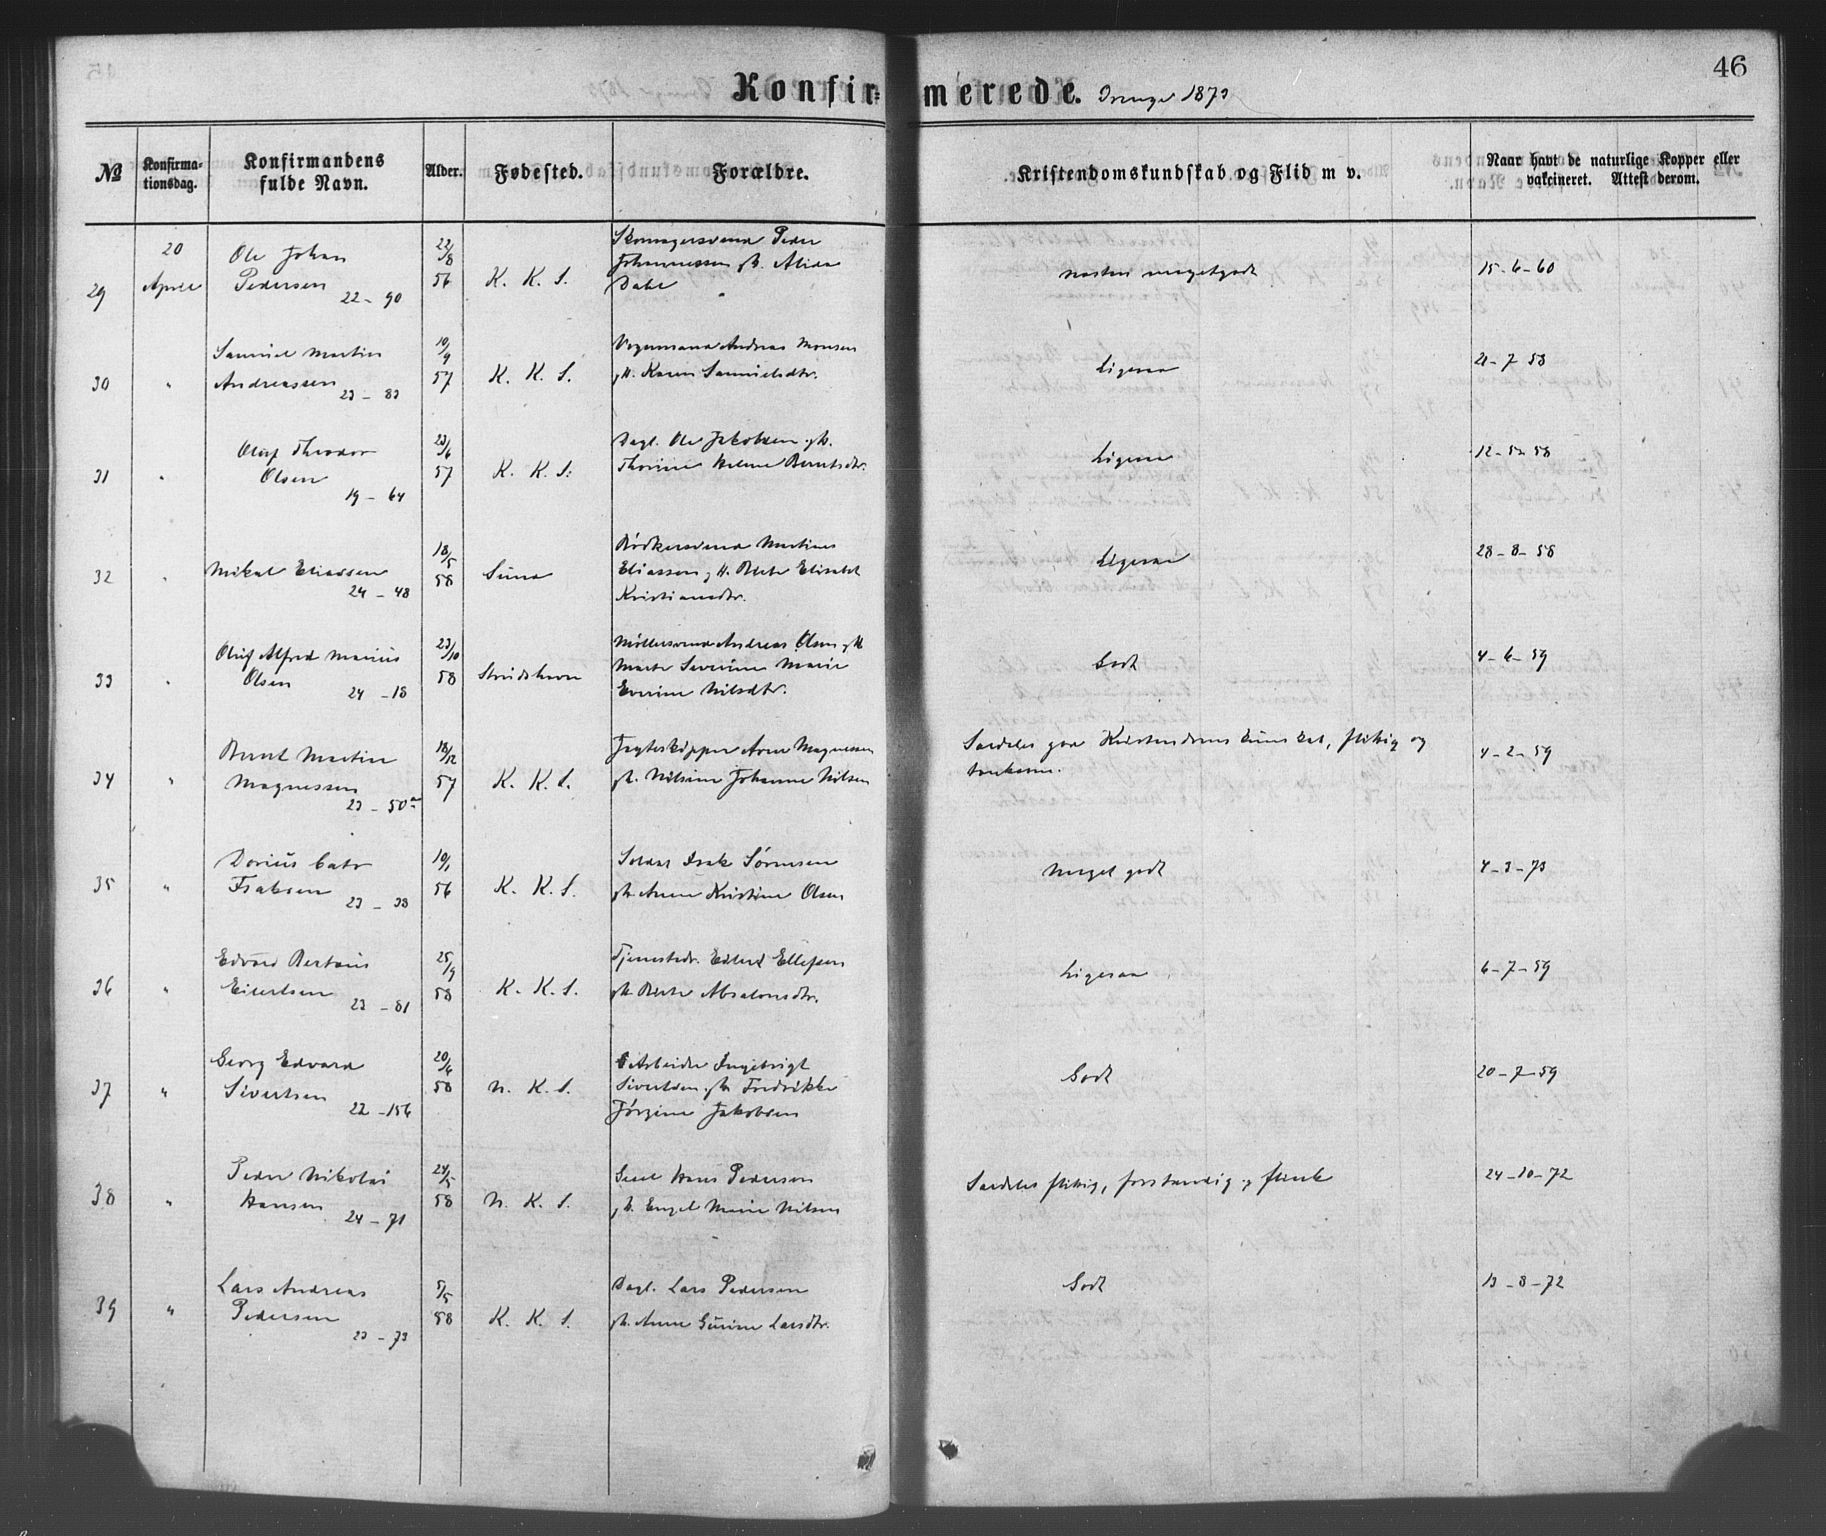 46
Konfirmerede. Drenge 1873
№
Konfirma-
tionsdag.
Konfirmandens
fulde Navn.
Alder.
Fødested.
Forældre.
Kristendomskundskab og Flid m v.
Naar havt de naturlige Kopper eller
vakcineret. Attest derom.
29
20
April
Ole Johan
Pedersen
22 - 90
22/8
56
K. K. S.
Skomagersvend Peder
Johannessen gh. Alida
Dahl
næsten megetgodt
15-6-60
30
"
Samuel Martin
Andreassen
23 - 83
10/9
57
K. K. S.
Andreas Monsen
gh. Karen Samuelsdtr.
Ligesaa
21-7-58
31
"
Oluf Theodor
Olsen
19 - 64
23/6
57
K. K. S.
Dagl. Ole Jakobsen gh.
Thorine Helene Berntsdtr.
Ligesaa
12-5-58
32
"
Mikal Eliassen
24 - 48
18/5
58
Sund
Bødkersvend Martines
Eliassen gh. Berte Elisabet
Kristiansdtr.
Ligesaa
28-8-58
33
"
Oluf Alfred Marius
Olsen
24 - 18
23/10
58
Strudshavn
Møllersvend Andreas Olsen gh
Marte Severine Marie
Everine Nilsdtr.
Godt
4-6-59
34
"
Bernt Martin
Magnessen
23 - 50
18/12
57
K. K. S.
Jagteskipper Arne Magnessen
gh. Nilsine Johanne Nilsen
Særdeles god Kristendomskundskab, flittig og
4-2-59
35
"
Dorius Cato
Isaksen
23 - 38
10/1
56
K. K. S.
Soldat Isak Sørensen
gh. Anne Kristine Olsen
Meget godt
4-3-73
36
"
Edvard Bertois
Eilertsen
23 - 81
25/9
58
K. K. S.
Tjenestedr. Eilert Ellefsen
gh. Berte Absalonsdtr.
Ligesaa
6-7-59
37
"
Georg Edvard
Sivertsen
22 - 156
20/4
58
N. K. S.
Arbeider Ingebrigt
Sivertsen gh. Fredrikke
Jørgine Jakobsen
Godt
20-7-59
38
"
Peder Nikolai
Hansen
24 - 71
24/5
58
N. K. S.
Hans Pedersen
gh. Engel Marie Nilsen
Særdeles flittig, forstandig og flink
24-10-72
39
"
Lars Andreas
Pedersen
23 - 73
5/5
58
K. K. S.
Dagl. Lars Pedersen
gh. Anne Gurine Larsdtr.
Godt
13-8-72